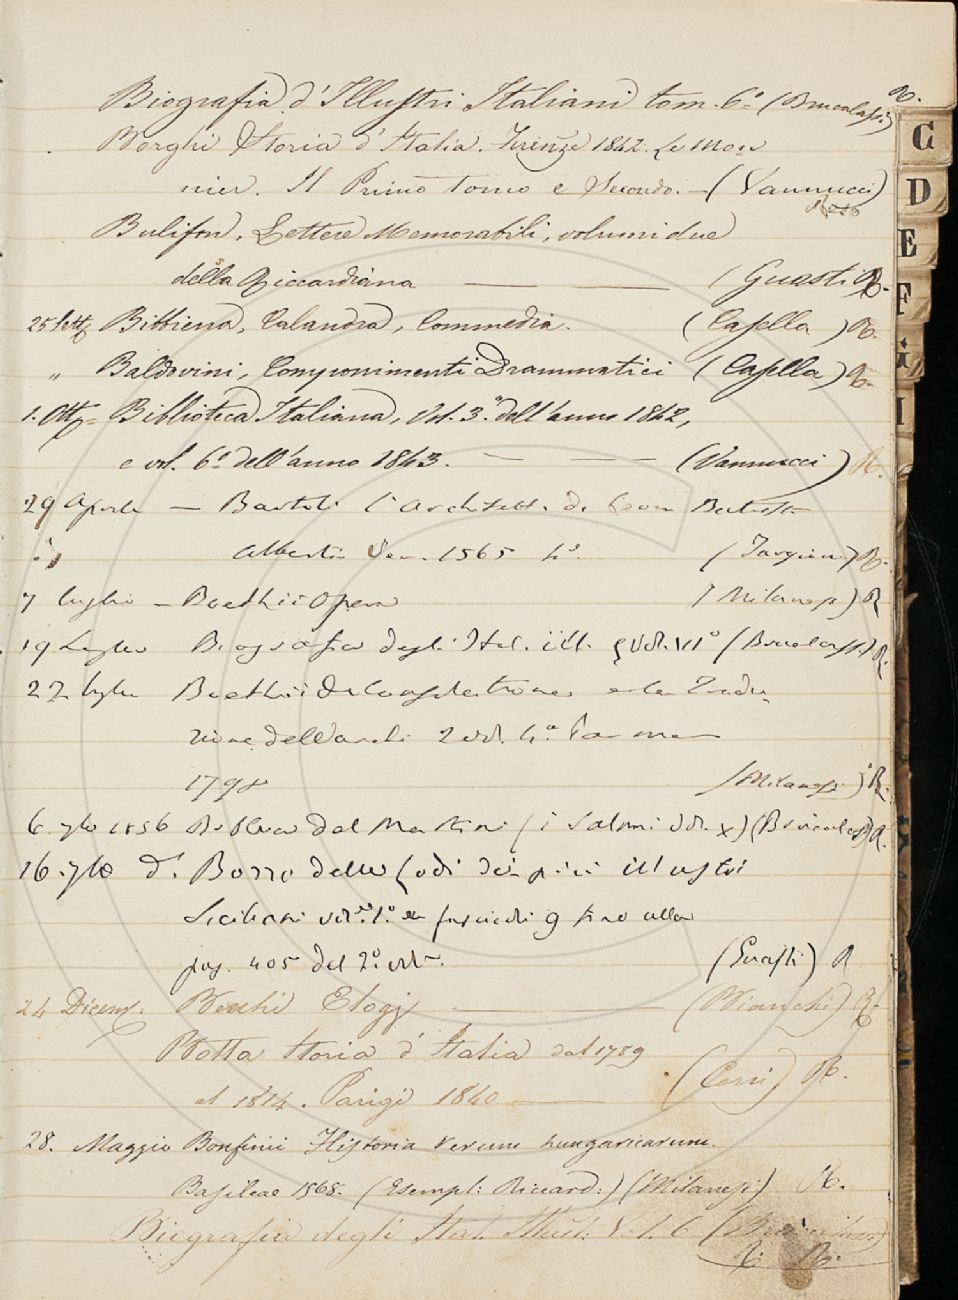 Biografia d'Illustri Italiani tom. 6.° (Brucalassi) R.
Borghi Storia d'Italia. Firenze 1842. Le Mon
nier. Il Primo tomo e Secondo. — (Vannucci)
Reso
Bulifon, Lettere Memorabili, volumi due
della Riccardiana — (Guasti) R.
25 Sett. Bibbiena, Calandra, Commedia. (Casella) R.
„ Baldovini, Componimenti Drammatici (Casella) R.
1. Ott. Biblioteca Italiana, Vol. 3.° dell'anno 1842,
e vol. 6.° dell'anno 1843. — — (Vannucci) R.
29 Aprile — Bartoli l'Architett. di Leon Battista
Alberti Ven. 1565 4° ( ) R.
7 luglio — Boethii Opera (Milanesi) R
19 Luglio Biografia degli Ital. ill. vol. VI° (Brucalassi) R.
22 luglio Boethii De Consolatione e la Tradu
zione del Varchi 2 vol. 4.° Parma
1798 (Milanesi) R.
6. 7bre 1856 Bibbia del Martini (i Salmi vol. X) (Brucalassi) R.
16. 7bre d.° Bozzo delle Lodi dei più illustri
Siciliani vol. 1.° e fascicoli 9 fino alla
pag. 405 del 2.° vol. (Guasti) R
24 Dicem. Elogj — (Bianchi) R.
Botta Storia d'Italia dal 1789
al 1814. Parigi 1840 — (Corsi) R.
28. Maggio Bonfinii Historia rerum hungaricarum.
Basileae 1568. (Esempl: Riccard:) (Milanesi) R.
Biografia degli Ital. Illust: Vol. 6 (Brucalassi)
R. R.
C
D
E
F
G
I